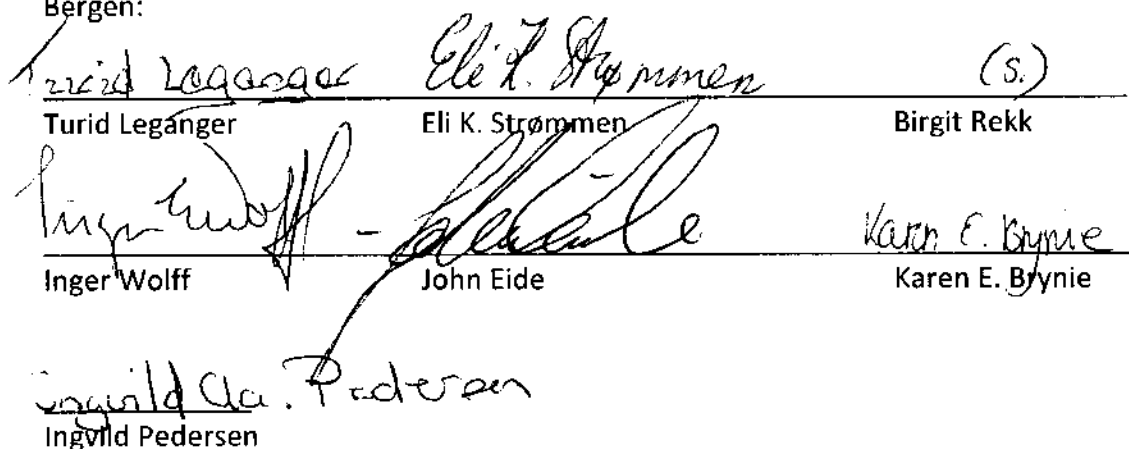 Bergen:
Turid Leganger Eli K. Strømmen (s.)
Turid Leganger Eli K. Strømmen Birgit Rekk
Inger Wolff Karen E. Brynie
Inger Wolff John Eide Karen E. Brynie
Ingvild Aa. Pedersen
Ingvild Pedersen